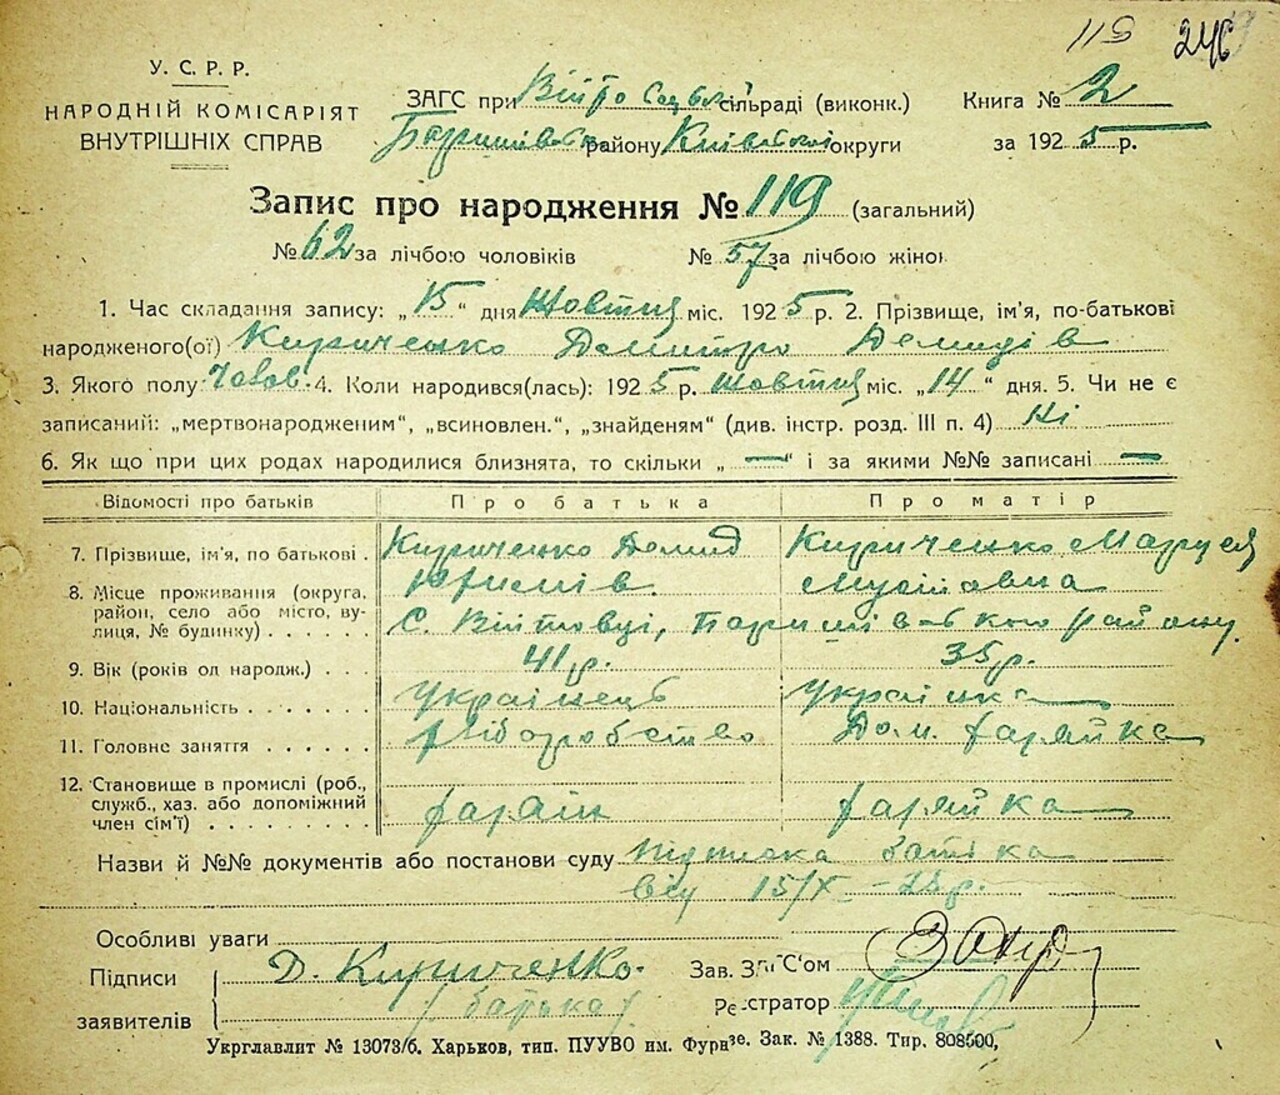 119 246
У. С. Р. Р.
НАРОДНІЙ КОМІСАРІЯТ
ВНУТРІШНІХ СПРАВ
ЗАГС при сільраді (виконк.)
Баришівськ. району Київської округи
Книга № 2
за 1925 р.
Запис про народження № 119 (загальний)
№ 62 за лічбою чоловіків № 57 за лічбою жінок
1. Час складання запису: „15“ дня Жовтня міс. 1925 р. 2. Прізвище, ім'я, по-батькові
народженого(ої) Кириченко Дмитро Демидів
3. Якого полу Чолов. 4. Коли народився(лась): 1925 р. Жовтня міс. „14“ дня. 5. Чи не є
записаний: „мертвонародженим“, „всиновлен.“, „знайденям“ (див. інстр. розд. III п. 4) Ні
6. Як що при цих родах народилися близнята, то скільки „—“ і за якими №№ записані —
Відомості про батьків Про батька Про матір
7. Прізвище, ім'я, по батькові . Кириченко Демид Кириченко Маруся
8. Місце проживання (округа, Мусіївна
район, село або місто, ву-
лиця, № будинку) . . . . . . С. Війтовці, Баришівського району.
9. Вік (років од народж.) . . . 41 р. 35 р.
10. Національність . . . . . . . Українець Українка
11. Головне заняття . . . . . . хліборобство Дом. хазяйка
12. Становище в промислі (роб.,
служб., хаз. або допоміжний
член сім'ї) . . . . . . . . . хазяїн хазяйка
Назви й №№ документів або постанови суду Підписка батька
від 15/X – 25 р.
Особливі уваги
Підписи
заявителів
Д. Кириченко.
/батько/
Зав. ЗАГС'ом
Реєстратор
Укрглавлит № 13073/б. Харьков, тип. ПУУВО им. Фрунзе. Зак. № 1388. Тир. 808500,